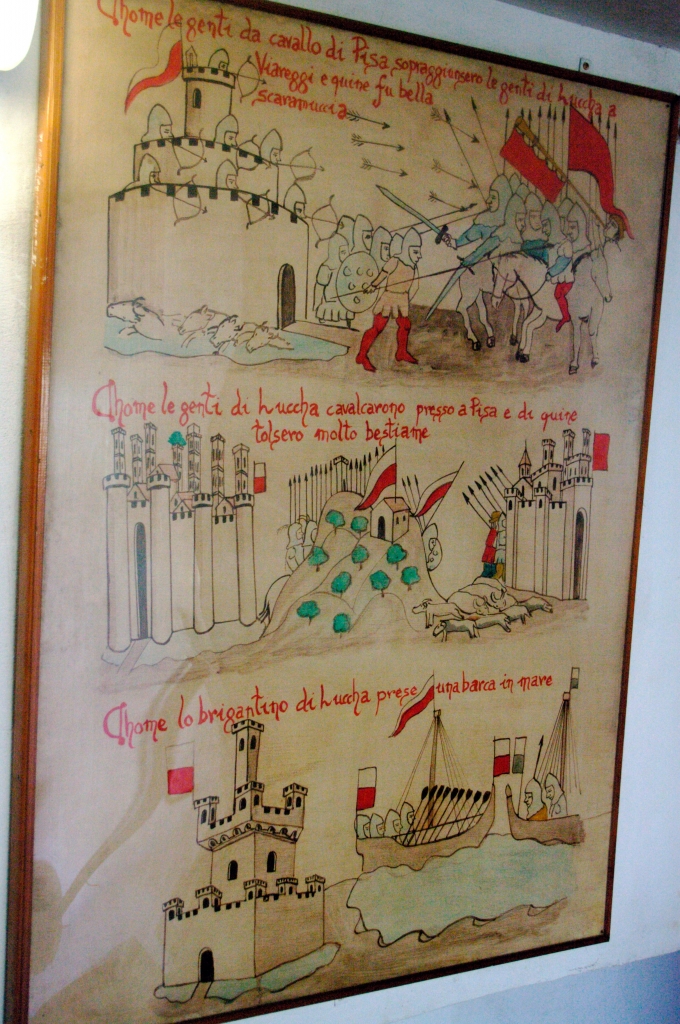 Chome le genti da cavallo di Pisa sopraggiunsero le genti di Luccha a
Viareggi e quine fu bella
scaramuccia
Chome le genti di Luccha cavalcarono presso a Pisa e di quine
tolsero molto bestiame
Chome lo brigantino di Luccha prese una barca in mare